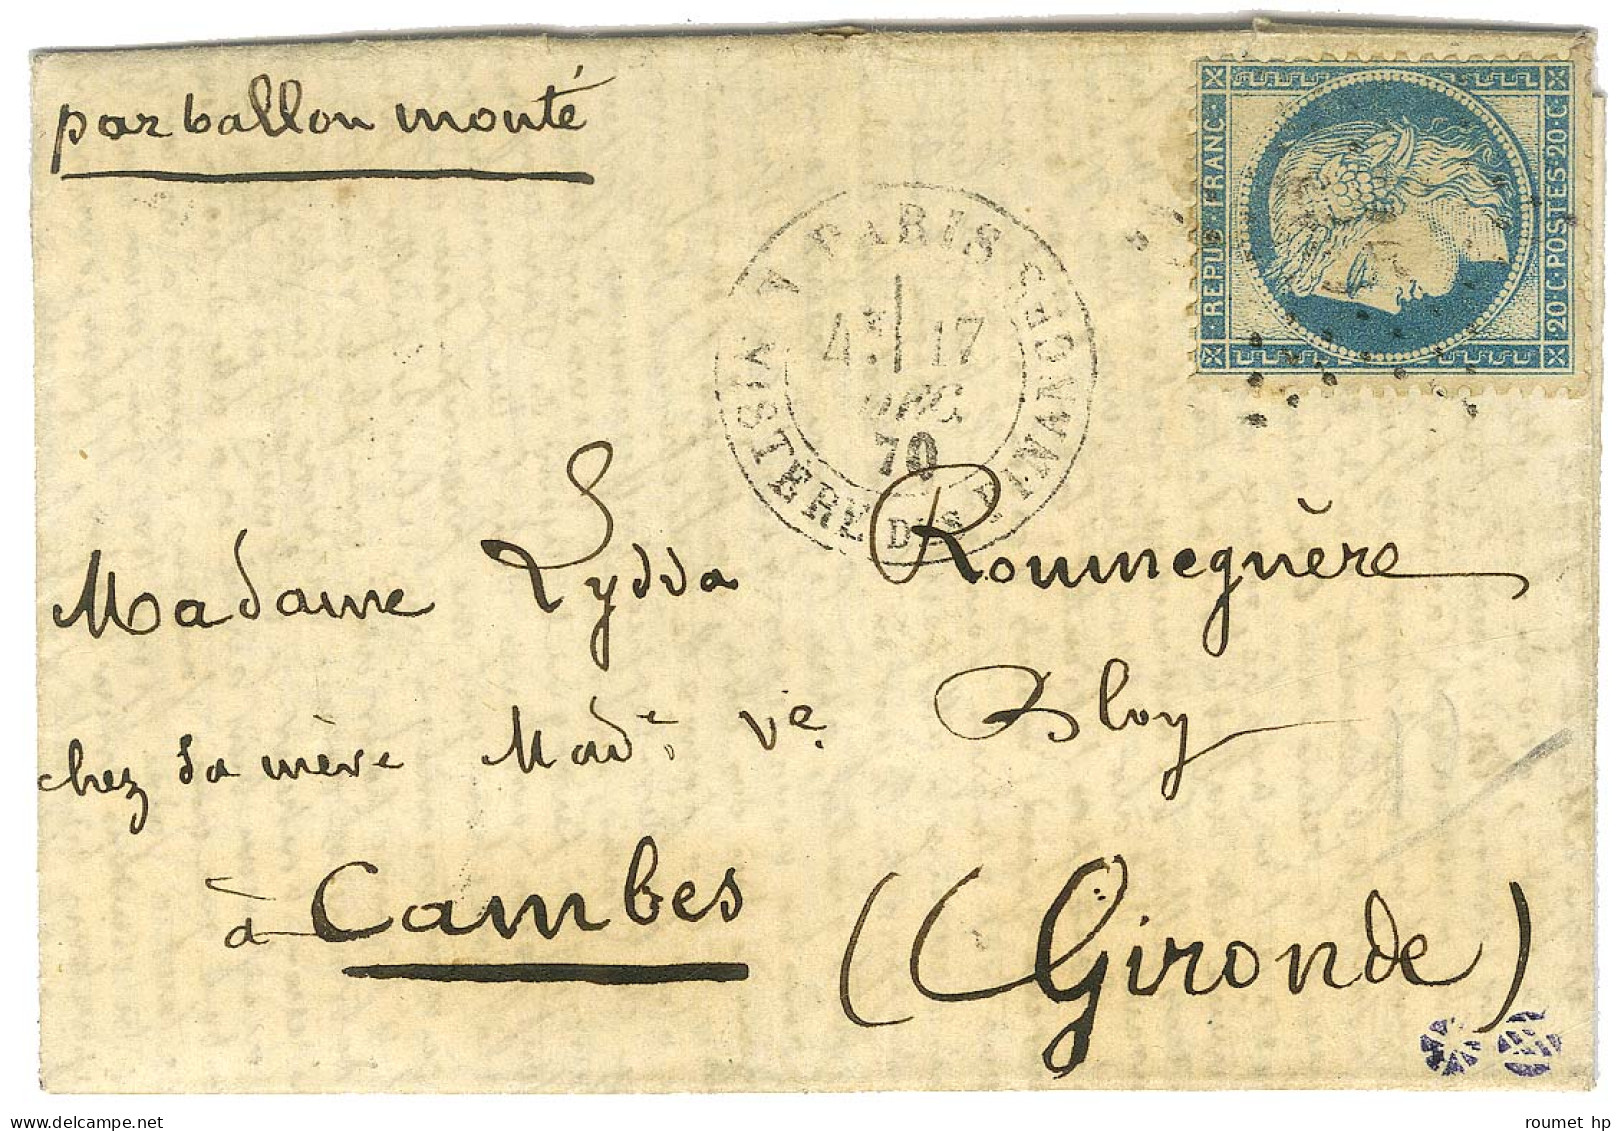 par ballon monté
REPUB. FRANC.
20 C. POSTES. 20 C.
PARIS
4ᴱ 17
DEC
70
DES FINANCES
Madame Lydda Roumeguère
chez sa mère Madᵉ Vᵉ Bloy
à Cambes (Gironde)
roumet hp